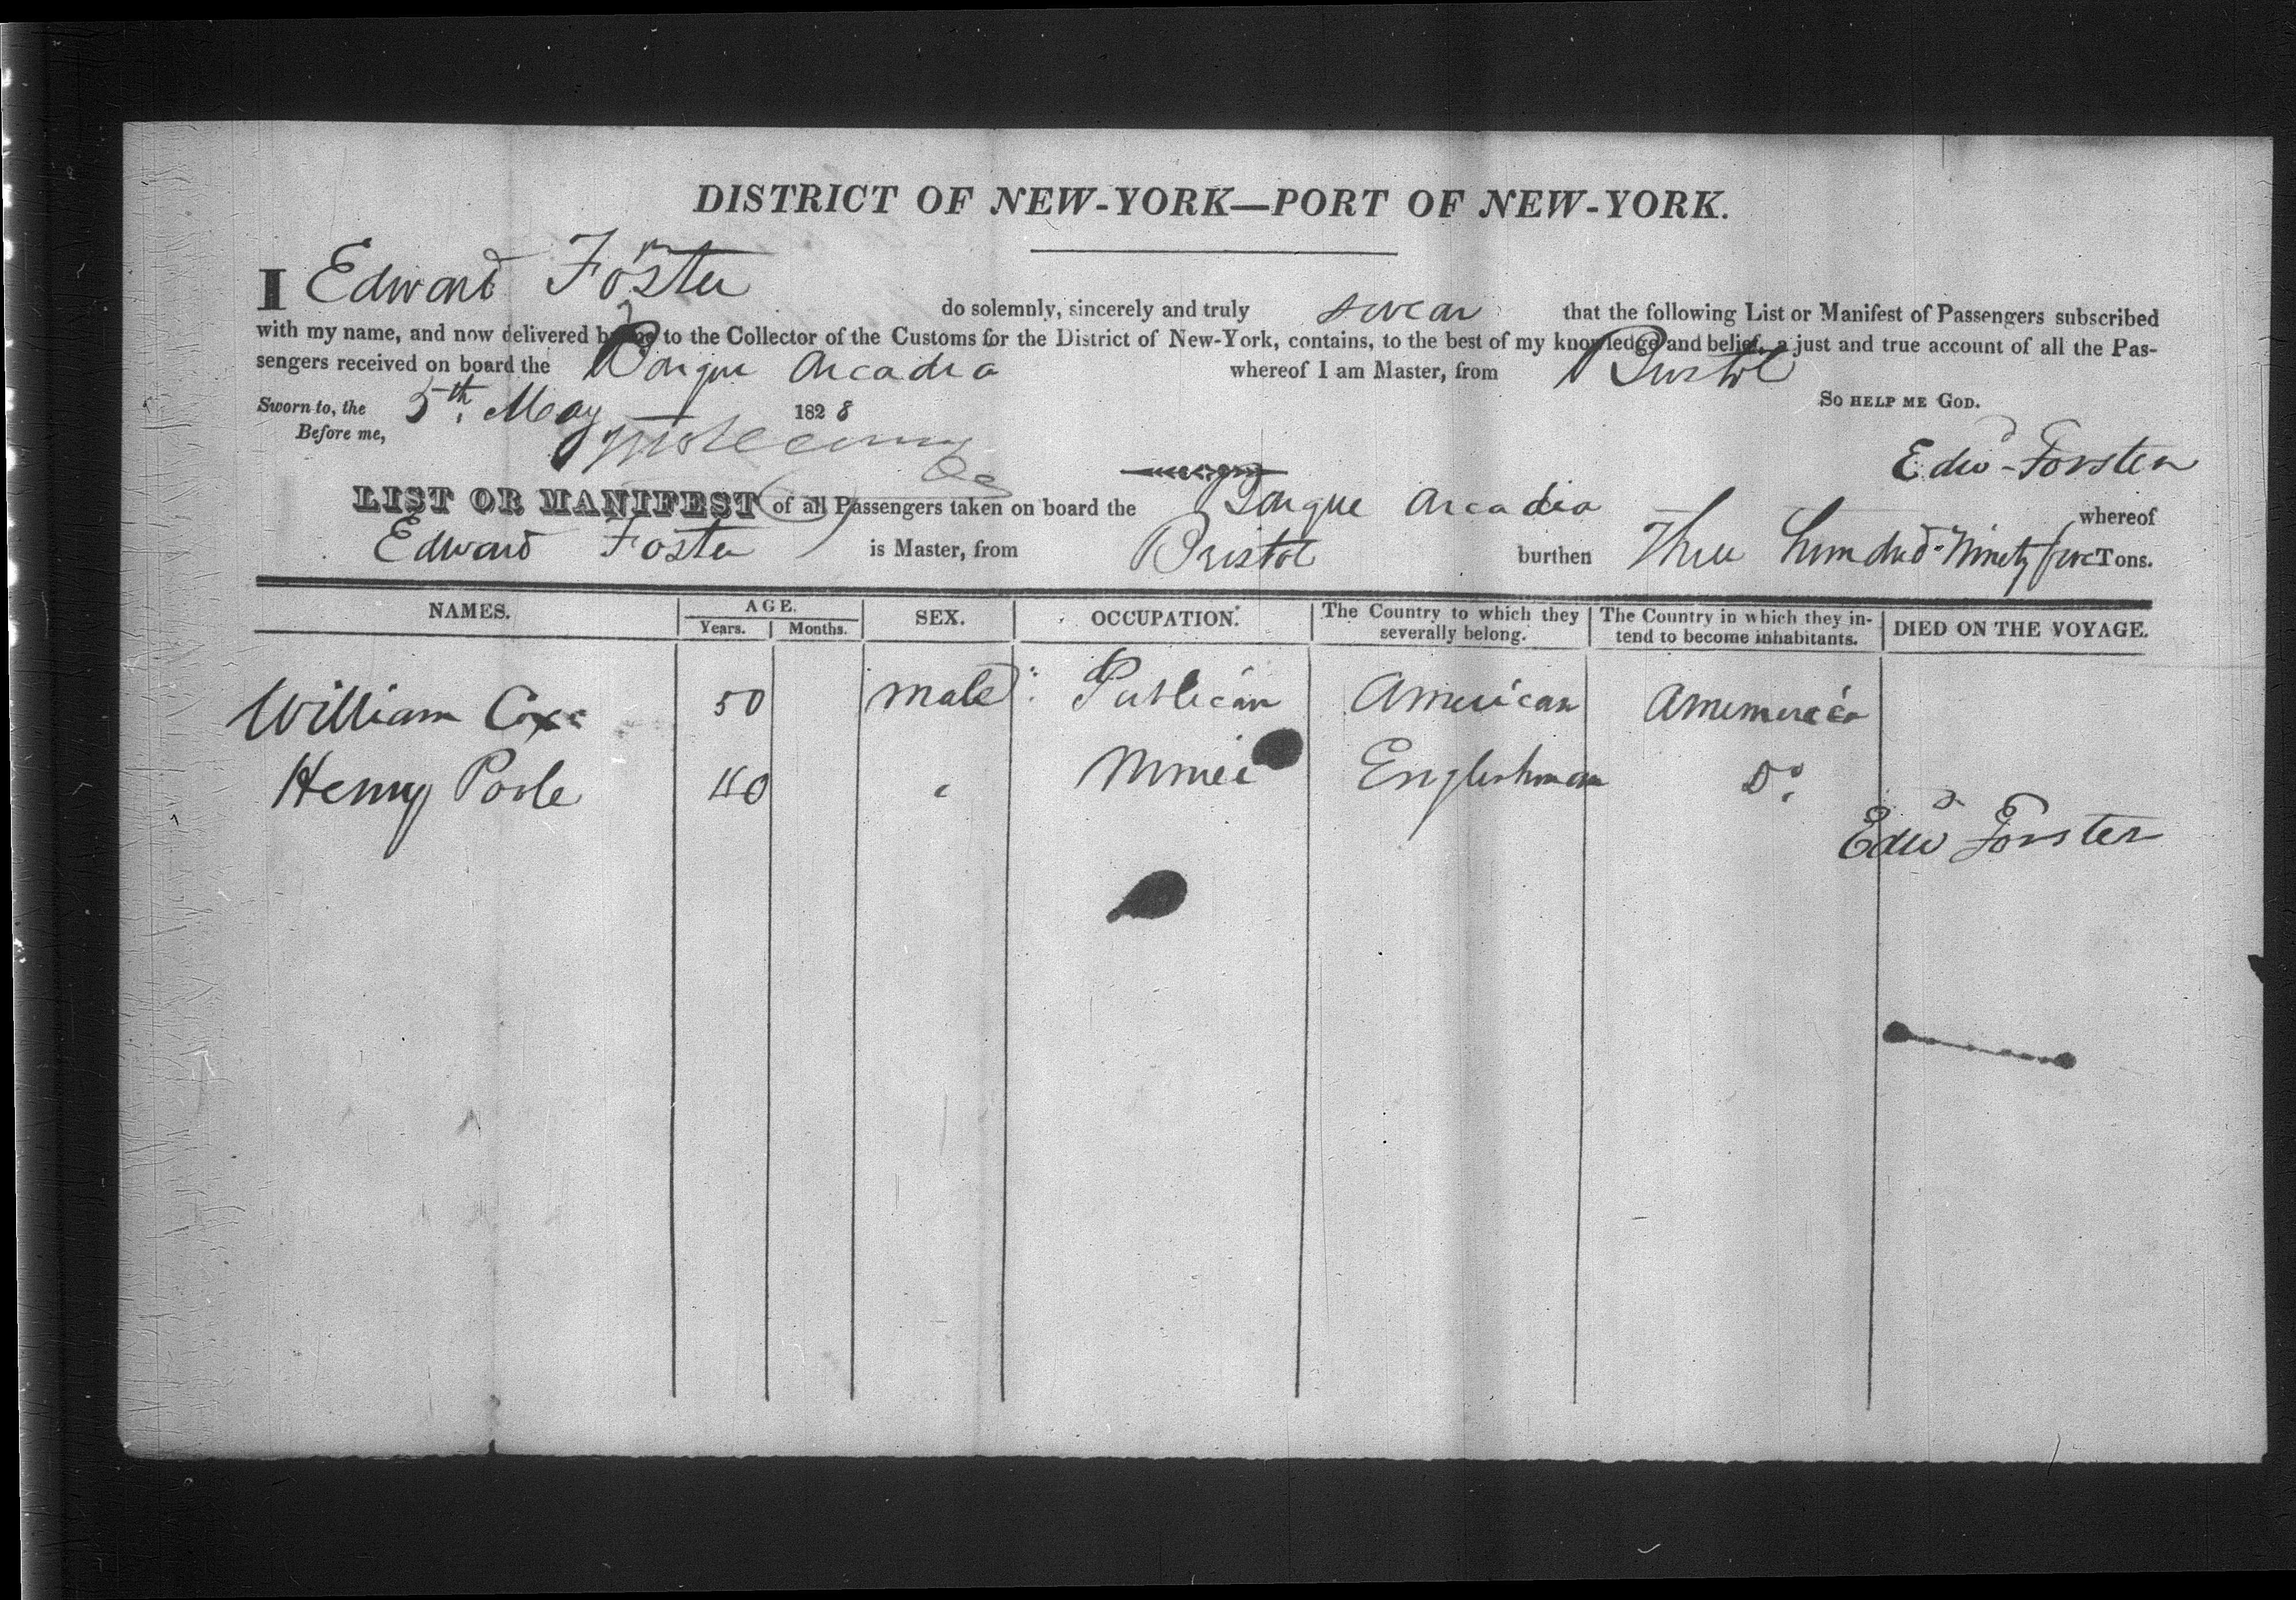 DISTRICT OF NEW-YORK—PORT OF NEW-YORK.
I Edward Forster do solemnly, sincerely and truly swear that the following List or Manifest of Passengers subscribed
with my name, and now delivered by me to the Collector of the Customs for the District of New-York, contains, to the best of my knowledge and belief, a just and true account of all the Pas-
sengers received on board the Barque Arcadia whereof I am Master, from Bristol
Sworn to, the 5th. May 1828 So HELP ME GOD.
Before me,
Edwd Forster
LIST OR MANIFEST of all Passengers taken on board the Barque Arcadia whereof
Edward Foster is Master, from Bristol burthen Three hundred Ninety five Tons.
NAMES. AGE. Years. Months. SEX. OCCUPATION. The Country to which they severally belong. The Country in which they in- tend to become inhabitants. DIED ON THE VOYAGE.
William Cox 50 male Publican American
Henry Poole 40 " Englishman Do.
Edwd Forster